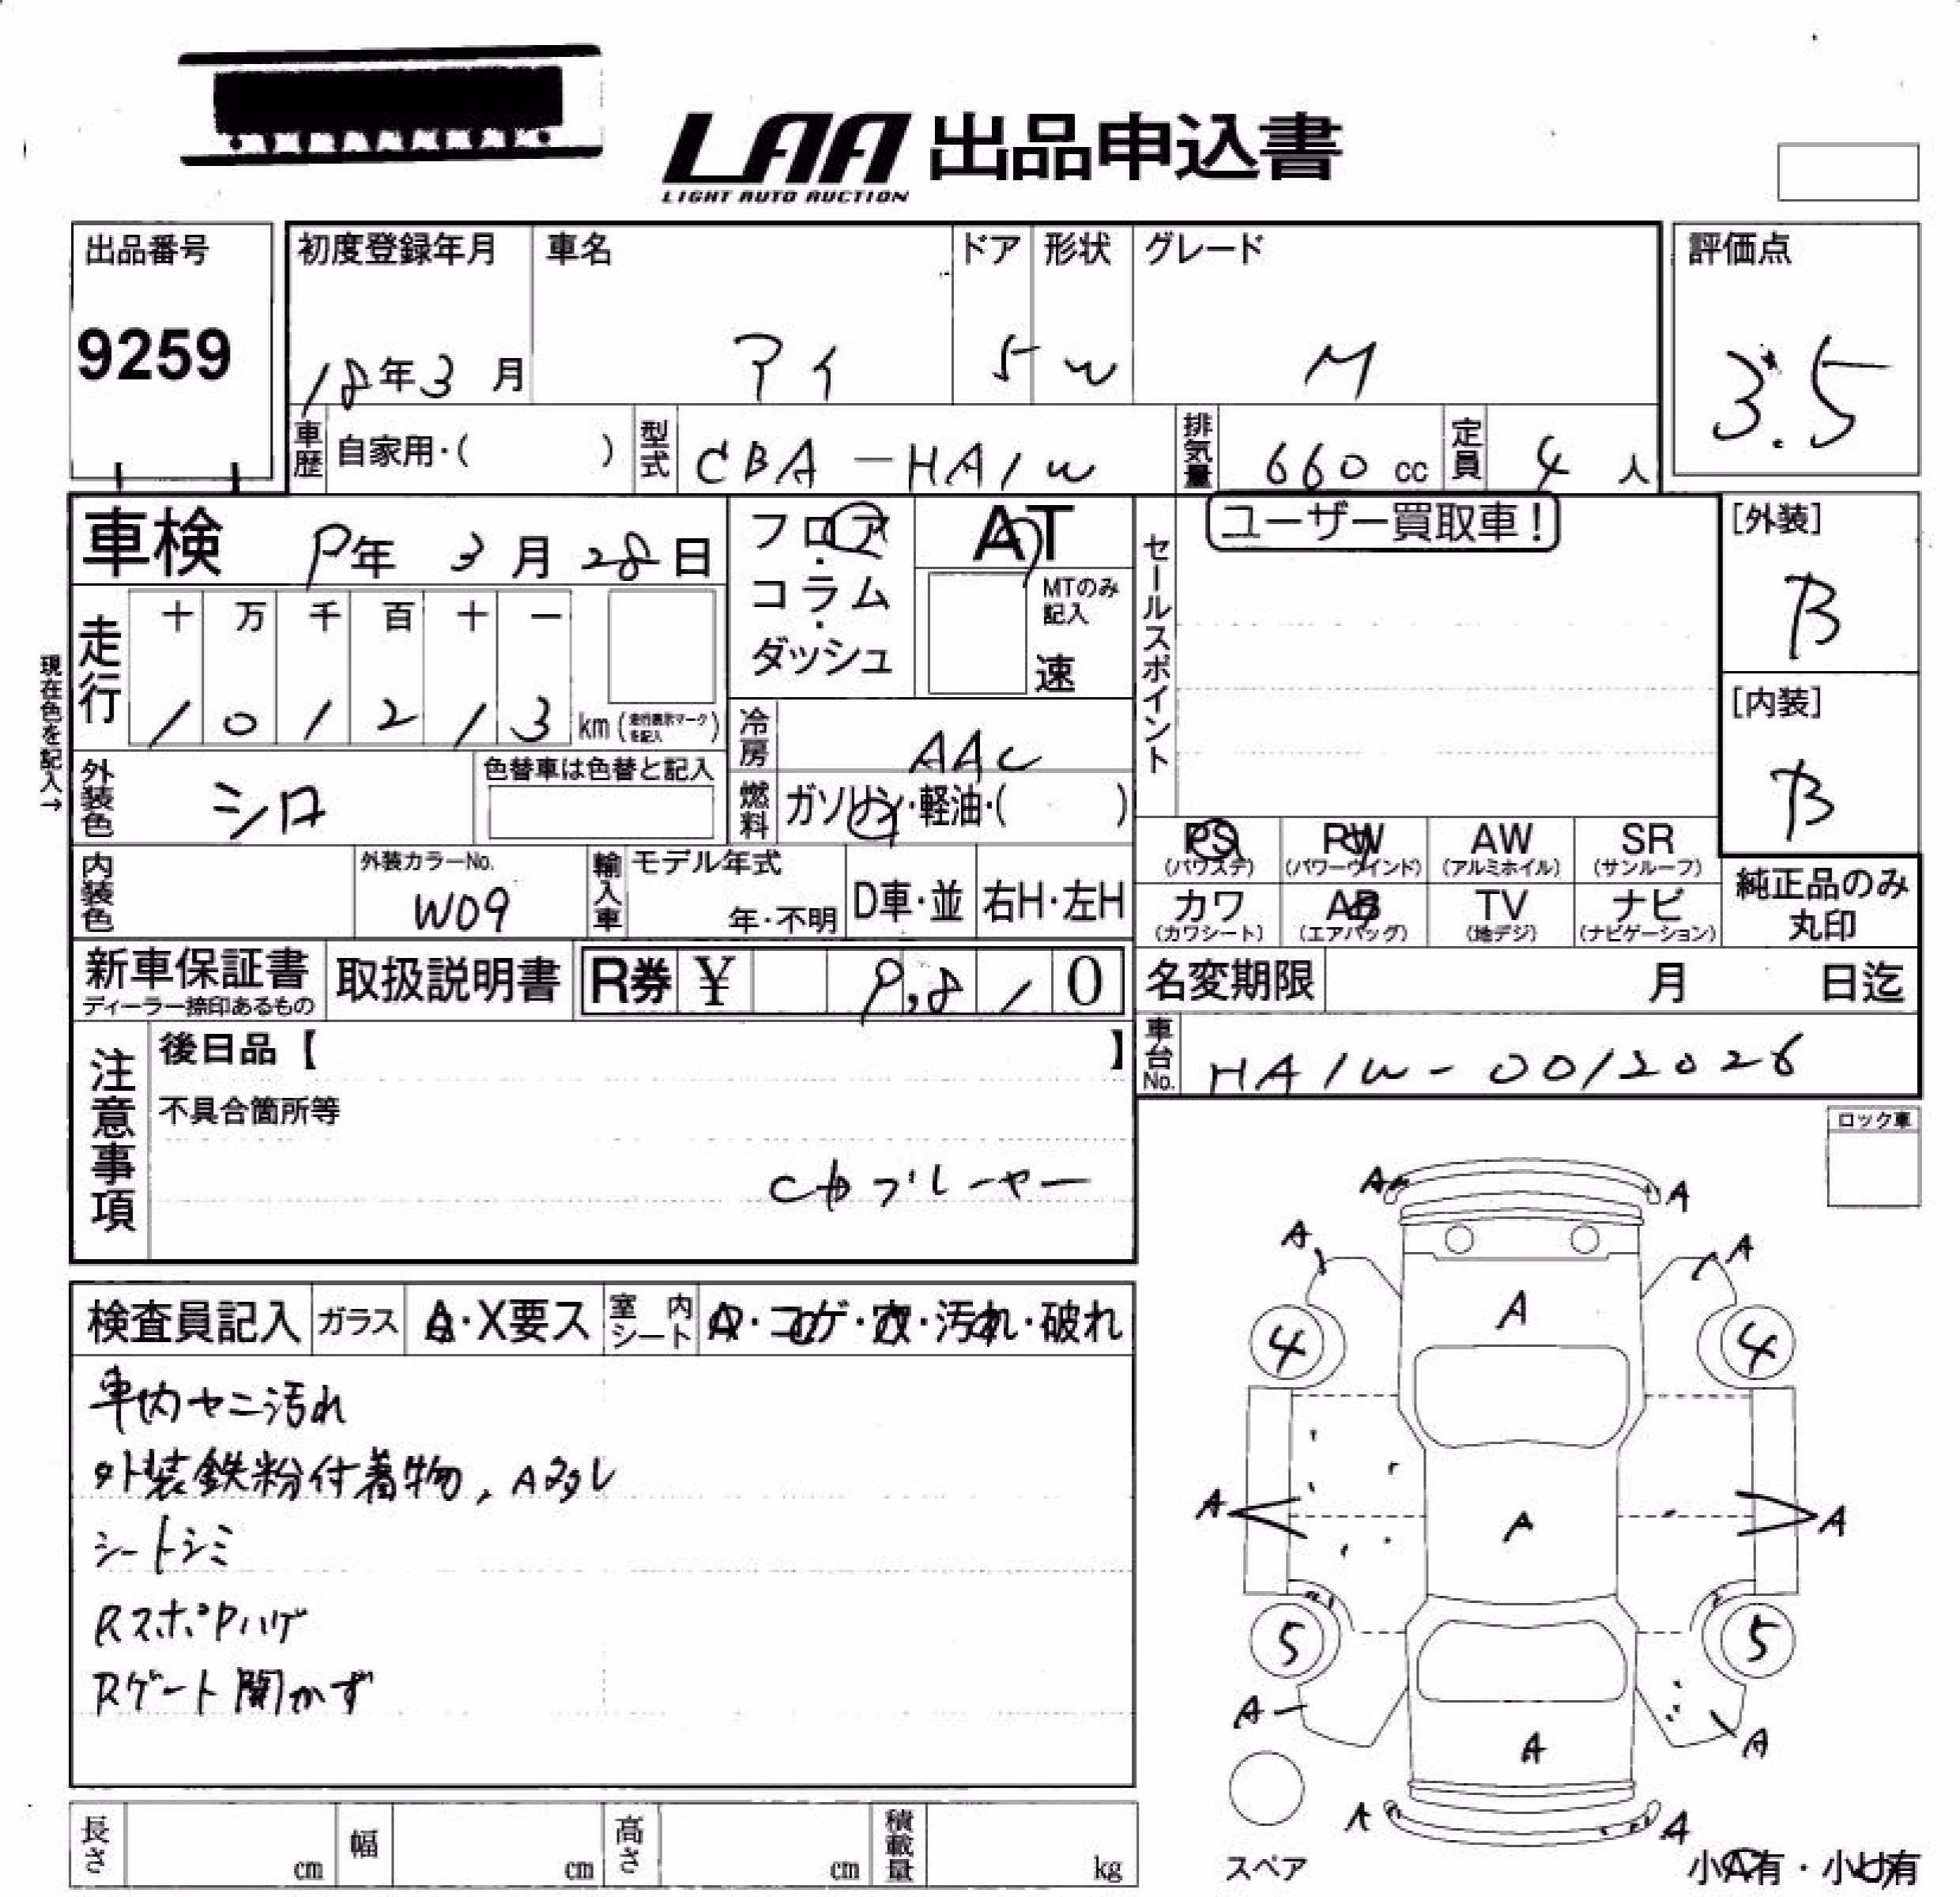 LAA 出品申込書
LIGHT AUTO AUCTION
出品番号
9259
初度登録年月
18年3月
車名
アイ
ドア
5
形状
W
グレード
M
評価点
3.5
車歴
自家用・( )
型式
CBA-HA1W
排気量
660cc
定員
4人
車検 9年 3月 28日
フロア・コラム・ダッシュ
AT
MTのみ記入
速
セールスポイント
ユーザー買取車!
[外装]
B
[内装]
B
現在色を記入→
走行
十 万 千 百 十 一
1 0 1 2 1 3 km (走行表示マークを記入)
冷房
AAC
外装色
シロ
色替車は色替と記入
燃料
ガソリン・軽油・( )
PS (パワステ)
PW (パワーウインド)
AW (アルミホイル)
SR (サンルーフ)
内装色
外装カラーNo.
W09
輸入車
モデル年式
年・不明
D車・並
右H・左H
カワ (カワシート)
AB (エアバッグ)
TV (地デジ)
ナビ (ナビゲーション)
純正品のみ丸印
新車保証書
ディーラー捺印あるもの
取扱説明書
R券 ¥ 9,810
名変期限 月 日迄
注意事項
後日品【 】
不具合箇所等
CDプレーヤー
車台No.
HA1W-0012026
ロック車
検査員記入
ガラス
A・X要ス
室内シート
A・コゲ・穴・汚れ・破れ
車内ヤニ汚れ
外装鉄粉付着物,A多し
シートシミ
RスポPハゲ
Rゲート開かず
A A
A A
A
4 4
A A A
5 5
A A
A
A A
スペア
小A有・小U有
長さ cm
幅 cm
高さ cm
積載量 kg